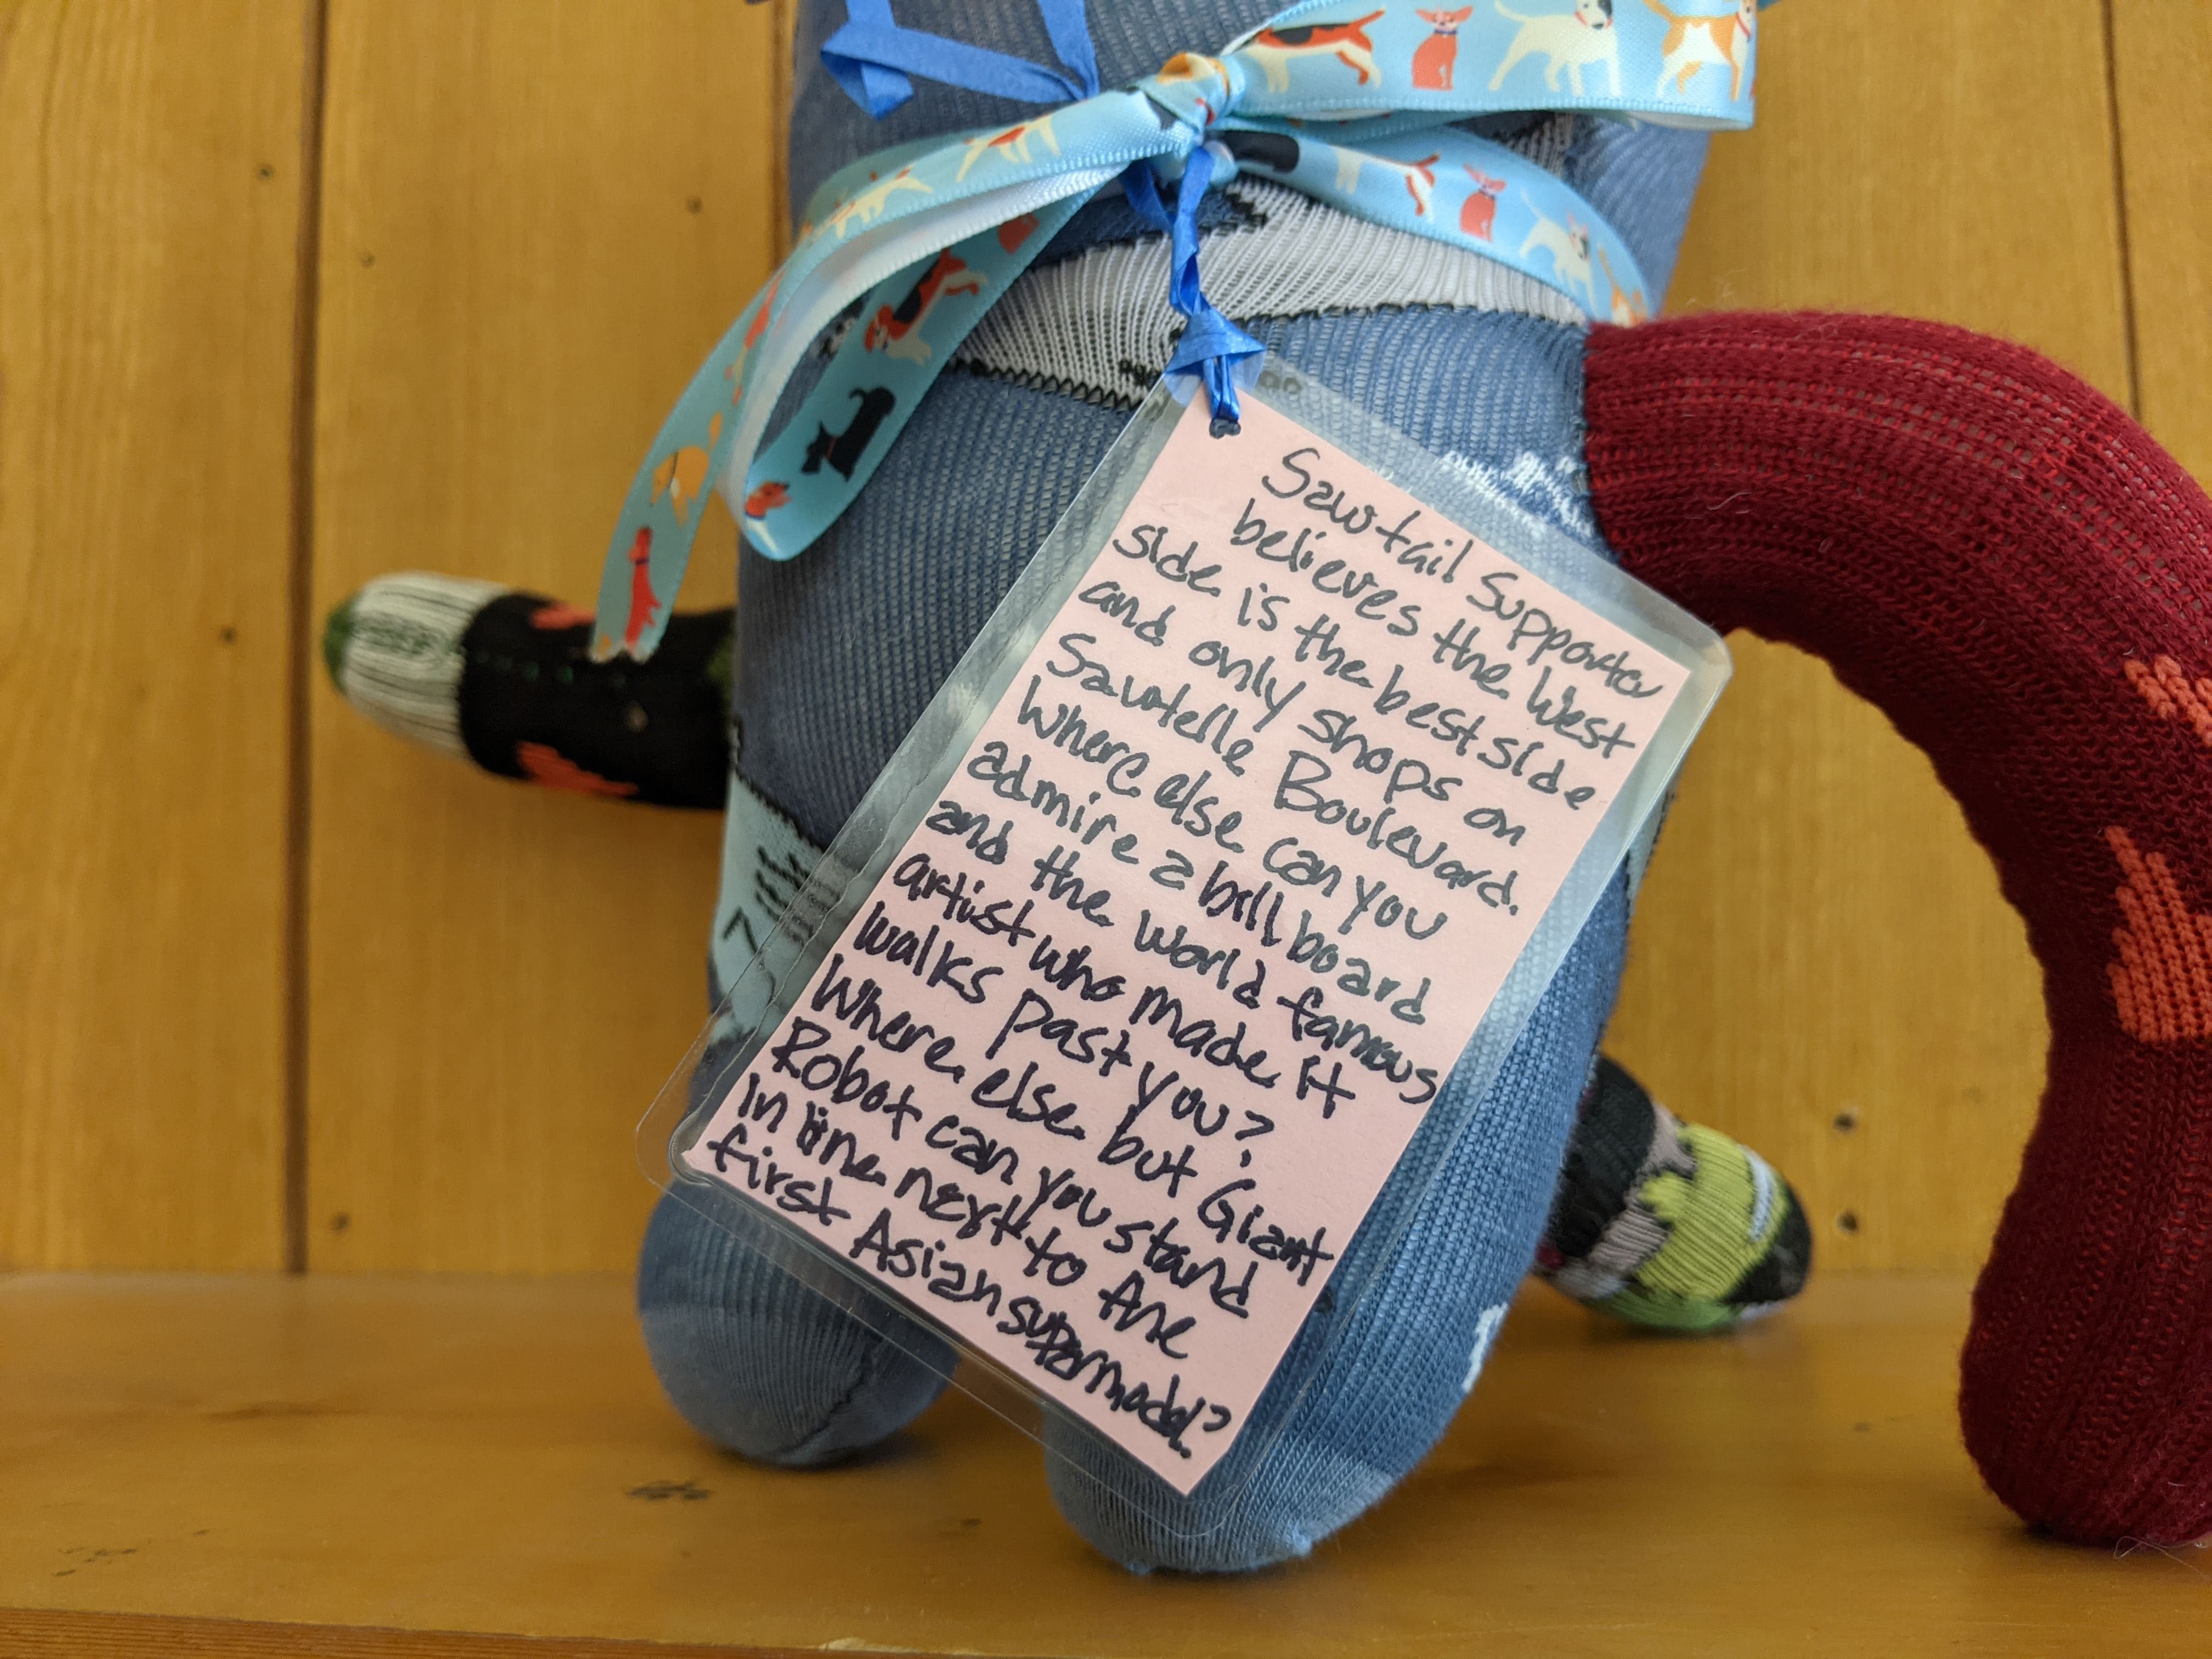 Sawtail Supporter
believes the West
side is the best side
and only shops on
Sawtelle Boulevard.
Where else can you
admire a billboard
and the world famous
artist who made it
walks past you?
Where else but Giant
Robot can you stand
in line next to the
first Asian supermodel?